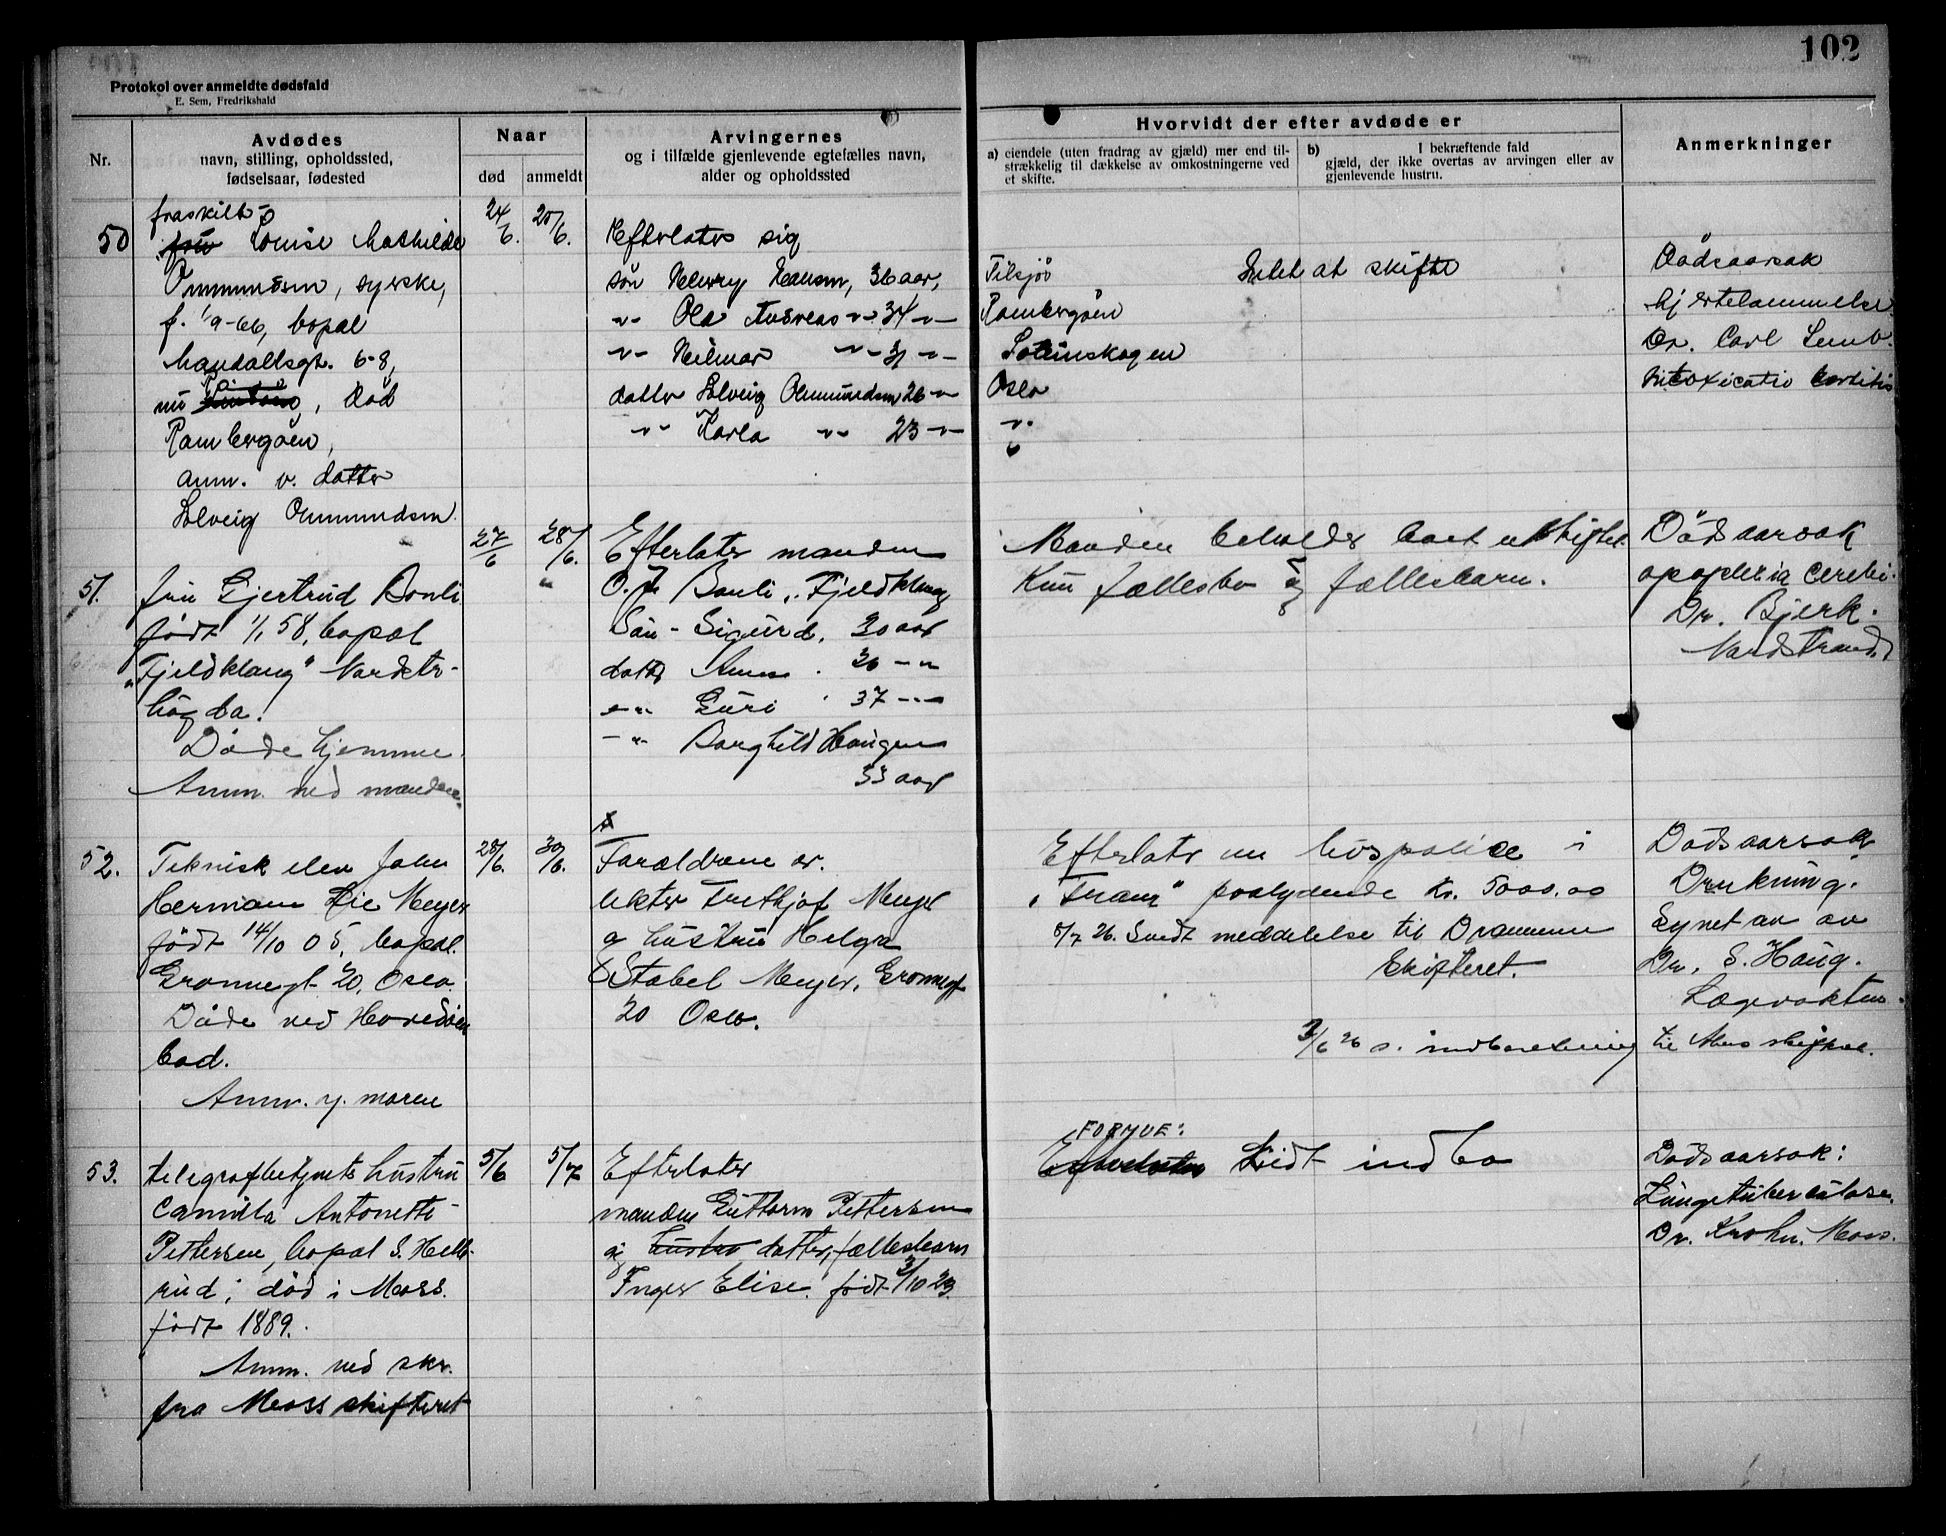 102
Protokol over anmeldte dødsfald
E. Sem, Fredrikshald
Nr.
Avdødes
navn, stilling, opholdssted,
fødselsaar, fødested
Naar
død
anmeldt
Arvingernes
og i tilfælde gjenlevende egtefælles navn,
alder og opholdssted
Hvorvidt der efter avdøde er
a) eiendele (uten fradrag av gjæld) mer end til-
strækkelig til dækkelse av omkostningerne ved
et skifte.
b) I bekræftende fald
gjæld, der ikke overtas av arvingen eller av
gjenlevende hustru.
Anmerkninger
50
fraskilt
fru Louise Mathilde
Ommundsen, syerske,
f. 1/9-66, bopæl
Mandallsgt. 6-8,
nu, død
Rambergøen,
anm. v. datter
Solveig Ommundsen.
24/6.
25/6.
Efterlater sig
søn Henry Hansen, 36 aar,
-"- Ola Andreas -"- 34 -"-
-"- Hilmar -"- 31 -"-
datter Solveig Ommundsen 26 -"-
-"- Karla -"- 23 -"-
Tilsjøs
Rambergøen
Oslo
-"-
Intet at skifte
Dødsaarsak
hjertelammelse
Dr. Carl
Intoxicatio
51.
fru Gjertrud Bonli
født 1/1 58, bopæl
"Fjeldklang" Nordstr-
høgda.
Døde hjemme.
Anm. ved manden.
27/6
28/6.
Efterlater manden
O. J. Bonli, Fjeldklang
Søn - Sigurd, 30 aar
datter Anna . 36 -"-
-"- Guri . 37 -"-
-"- Borghild Haugen
33 aar
Manden beholder boet uskiftet.
Kun fællesbo og fællesbarn.
Dødsaarsak
apoplexia cerebri.
Dr. Bjerk.
Nordstrand
52.
Teknisk elev John
Herman Lie Meyer
født 14/10 05, bopæl.
Grønnegt 20, Oslo.
Døde ved Hovedøen
bad.
Anm. v. moren
28/6.
30/6.
Forældrene er.
lektor Fridtjof Meyer
og hustru Helga
Stabel Meyer, Grønnegt
20 Oslo.
Efterlater en livspolice i
"Fram" paalydende Kr. 5000,00
5/7 26. Sendt meddelelse til Drammen
Skifteret.
26 s. indberetning til Akers skifter.
Dødsaarsak
Drukning.
Synet av av
Dr. S. Haug.
Lægevakten.
53.
telegrafbetjents hustru
Camilla Antonette
Pettersen, bopæl S. Helle-
rud; død i Moss.
født 1889.
Anm. ved skr.
fra Moss skifteret
5/6
5/7
Efterlater
manden Guttorm Pettersen
og hustru datter, fællesbarn
Inger Elise, født 3/10 23.
FORMUE:
Efterlater Lidt indbo
Dødsaarsak:
Lungetuberculose.
Dr. Krohn. Moss.